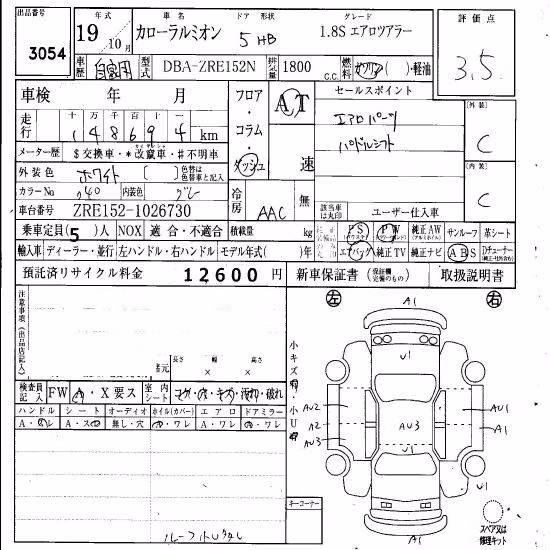 出品番号
3054
年式 車名 ドア 形状 グレード
19年 10月 カローラルミオン 5 HB 1.8S エアロツアラー
評価点
3.5
車歴 自家用 型式 DBA-ZRE152N 排気量 1800 c.c. 燃料 ガソリン( )・軽油
車検 年 月
フロア・コラム・ダッシュ
AT
速
セールスポイント
エアロパーツ
パドルシフト
走行 十 万 千 百 十 一
148694 km
メーター歴 $交換車・*改竄車・#不明車
外装色 ホワイト ( ) 色替は色替車と記入
カラーNo 040 内装色 グレー
車台番号 ZRE152-1026730
冷房 AAC 無
該当車は丸印 ユーザー仕入車
外装
C
内装
C
乗車定員(5)人 NOX 適合・不適合 積載量 kg
PS PW 純正AW サンルーフ 革シート
輸入車 ディーラー・並行 左ハンドル・右ハンドル モデル年式( )年
エアバッグ 純正TV 純正ナビ ABS Dチューナー
預託済リサイクル料金 12600円 新車保証書 (保証欄完備のもの) 取扱説明書
注意事項(出品店記入)
長さ 幅 高さ
検査員記入 FW ・X要ス 室内シート コゲ・穴・キズ・汚れ・破れ
ハンドル シート オーディオ ホイル(カバー) エアロ ドアミラー
無し・穴
小キズ・小U
キーコーナー
左 右
A1
U1
AU2
A2
AU3
AU3
AU1
A1
U1
U1
A1
スペア又は修理キット